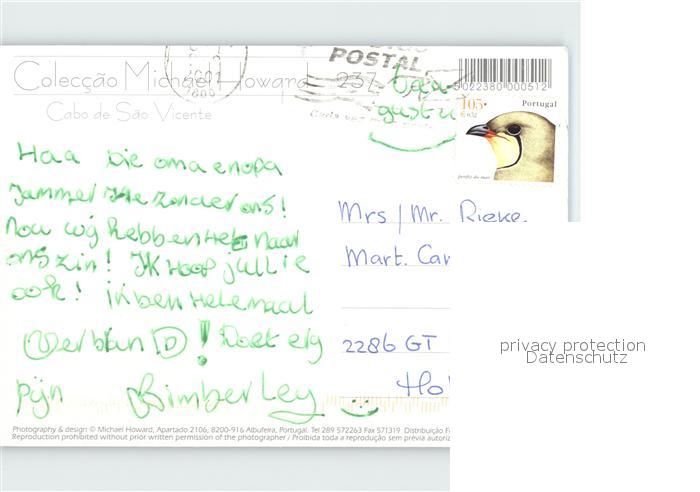 POSTAL
2001
Colecção Michael Howard 237
5022380000512
Cabo de São Vicente
105.
Portugal
perdiz do mar
Haa bie oma enopa
Jammer He zonder ons!
Nou wij hebben het naar
ons zin! Ik Hoop jullie
ook! ik ben Helemaal
Verbran D! Doet erg
pijn Kimberley
Mrs / Mr. Rieke.
Mart. Car
2286 GT
Hol
privacy protection
Datenschutz
Photography & design © Michael Howard, Apartado 2106, 8200-916 Albufeira, Portugal. Tel 289 572263 Fax 571319 Distribuição F
Reproduction prohibited without prior written permission of the photographer / Proibida toda a reprodução sem prévia autoriz